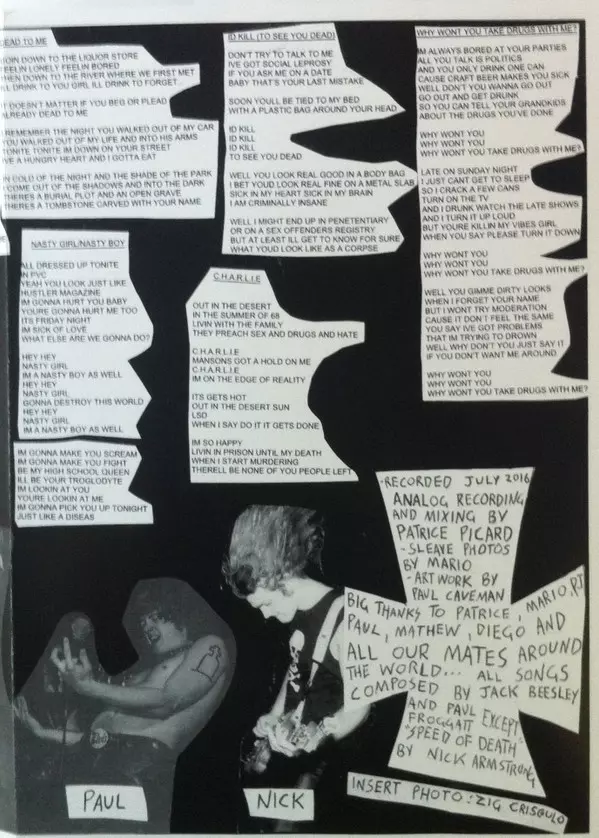 DEAD TO ME
DOWN TO THE LIQUOR STORE
FEELIN LONELY FEELIN BORED
THEN DOWN TO THE RIVER WHERE WE FIRST MET
ILL DRINK TO YOUR GIRL ILL DRINK TO FORGET
IT DOESNT MATTER IF YOU BEG OR PLEAD
ALREADY DEAD TO ME
REMEMBER THE NIGHT YOU WALKED OUT OF MY CAR
YOU WALKED OUT OF MY LIFE AND INTO HIS ARMS
TONITE TONITE IM DOWN ON YOUR STREET
IVE A HUNGRY HEART AND I GOTTA EAT
IN COLD OF THE NIGHT AND THE SHADE OF THE PARK
I COME OUT OF THE SHADOWS AND INTO THE DARK
THERES A BURIAL PLOT AND AN OPEN GRAVE
THERES A TOMBSTONE CARVED WITH YOUR NAME
NASTY GIRL/NASTY BOY
ALL DRESSED UP TONITE
IN PVC
YEAH YOU LOOK JUST LIKE
HUSTLER MAGAZINE
IM GONNA HURT YOU BABY
YOURE GONNA HURT ME TOO
ITS FRIDAY NIGHT
IM SICK OF LOVE
WHAT ELSE ARE WE GONNA DO?
HEY HEY
NASTY GIRL
IM A NASTY BOY AS WELL
HEY HEY
NASTY GIRL
GONNA DESTROY THIS WORLD
HEY HEY
NASTY GIRL
IM A NASTY BOY AS WELL
IM GONNA MAKE YOU SCREAM
IM GONNA MAKE YOU FIGHT
BE MY HIGH SCHOOL QUEEN
ILL BE YOUR TROGLODYTE
IM LOOKIN AT YOU
YOURE LOOKIN AT ME
IM GONNA PICK YOU UP TONIGHT
JUST LIKE A DISEAS
ID KILL (TO SEE YOU DEAD)
DONT TRY TO TALK TO ME
IVE GOT SOCIAL LEPROSY
IF YOU ASK ME ON A DATE
BABY THAT'S YOUR LAST MISTAKE
SOON YOULL BE TIED TO MY BED
WITH A PLASTIC BAG AROUND YOUR HEAD
ID KILL
ID KILL
ID KILL
TO SEE YOU DEAD
WELL YOU LOOK REAL GOOD IN A BODY BAG
I BET YOUD LOOK REAL FINE ON A METAL SLAB
SICK IN MY HEART SICK IN MY BRAIN
I AM CRIMINALLY INSANE
WELL I MIGHT END UP IN PENETENTIARY
OR ON A SEX OFFENDERS REGISTRY
BUT AT LEAST ILL GET TO KNOW FOR SURE
WHAT YOUD LOOK LIKE AS A CORPSE
C.H.A.R.L.I.E
OUT IN THE DESERT
IN THE SUMMER OF 68
LIVIN WITH THE FAMILY
THEY PREACH SEX AND DRUGS AND HATE
C.H.A.R.L.I.E
MANSONS GOT A HOLD ON ME
C.H.A.R.L.I.E
IM ON THE EDGE OF REALITY
ITS GETS HOT
OUT IN THE DESERT SUN
LSD
WHEN I SAY DO IT IT GETS DONE
IM SO HAPPY
LIVIN IN PRISON UNTIL MY DEATH
WHEN I START MURDERING
THERELL BE NONE OF YOU PEOPLE LEFT
WHY WONT YOU TAKE DRUGS WITH ME?
IM ALWAYS BORED AT YOUR PARTIES
ALL YOU TALK IS POLITICS
AND YOU ONLY DRINK ONE CAN
CAUSE CRAFT BEER MAKES YOU SICK
WELL DON'T YOU WANNA GO OUT
GO OUT AND GET DRUNK
SO YOU CAN TELL YOUR GRANDKIDS
ABOUT THE DRUGS YOU'VE DONE
WHY WONT YOU
WHY WONT YOU
WHY WONT YOU TAKE DRUGS WITH ME?
LATE ON SUNDAY NIGHT
I JUST CANT GET TO SLEEP
SO I CRACK A FEW CANS
TURN ON THE TV
AND I DRUNK WATCH THE LATE SHOWS
AND I TURN IT UP LOUD
BUT YOURE KILLIN MY VIBES GIRL
WHEN YOU SAY PLEASE TURN IT DOWN
WHY WONT YOU
WHY WONT YOU
WHY WONT YOU TAKE DRUGS WITH ME?
WELL YOU GIMME DIRTY LOOKS
WHEN I FORGET YOUR NAME
BUT I WONT TRY MODERATION
CAUSE IT DON'T FEEL THE SAME
YOU SAY IVE GOT PROBLEMS
THAT IM TRYING TO DROWN
WELL WHY DON'T YOU JUST SAY IT
IF YOU DON'T WANT ME AROUND
WHY WONT YOU
WHY WONT YOU
WHY WONT YOU TAKE DRUGS WITH ME?
-RECORDED JULY 2016
ANALOG RECORDING
AND MIXING BY
PATRICE PICARD
-SLEAVE PHOTOS
BY MARIO
-ARTWORK BY
PAUL CAVEMAN
BIG THANKS TO PATRICE, MARIO, RJ
PAUL, MATHEW, DIEGO AND
ALL OUR MATES AROUND
THE WORLD... ALL SONGS
COMPOSED BY JACK BEESLEY
AND PAUL EXCEPT
FROGGATT
"SPEED OF DEATH"
BY NICK ARMSTRONG
INSERT PHOTO: ZIG CRISGULO
PAUL
NICK